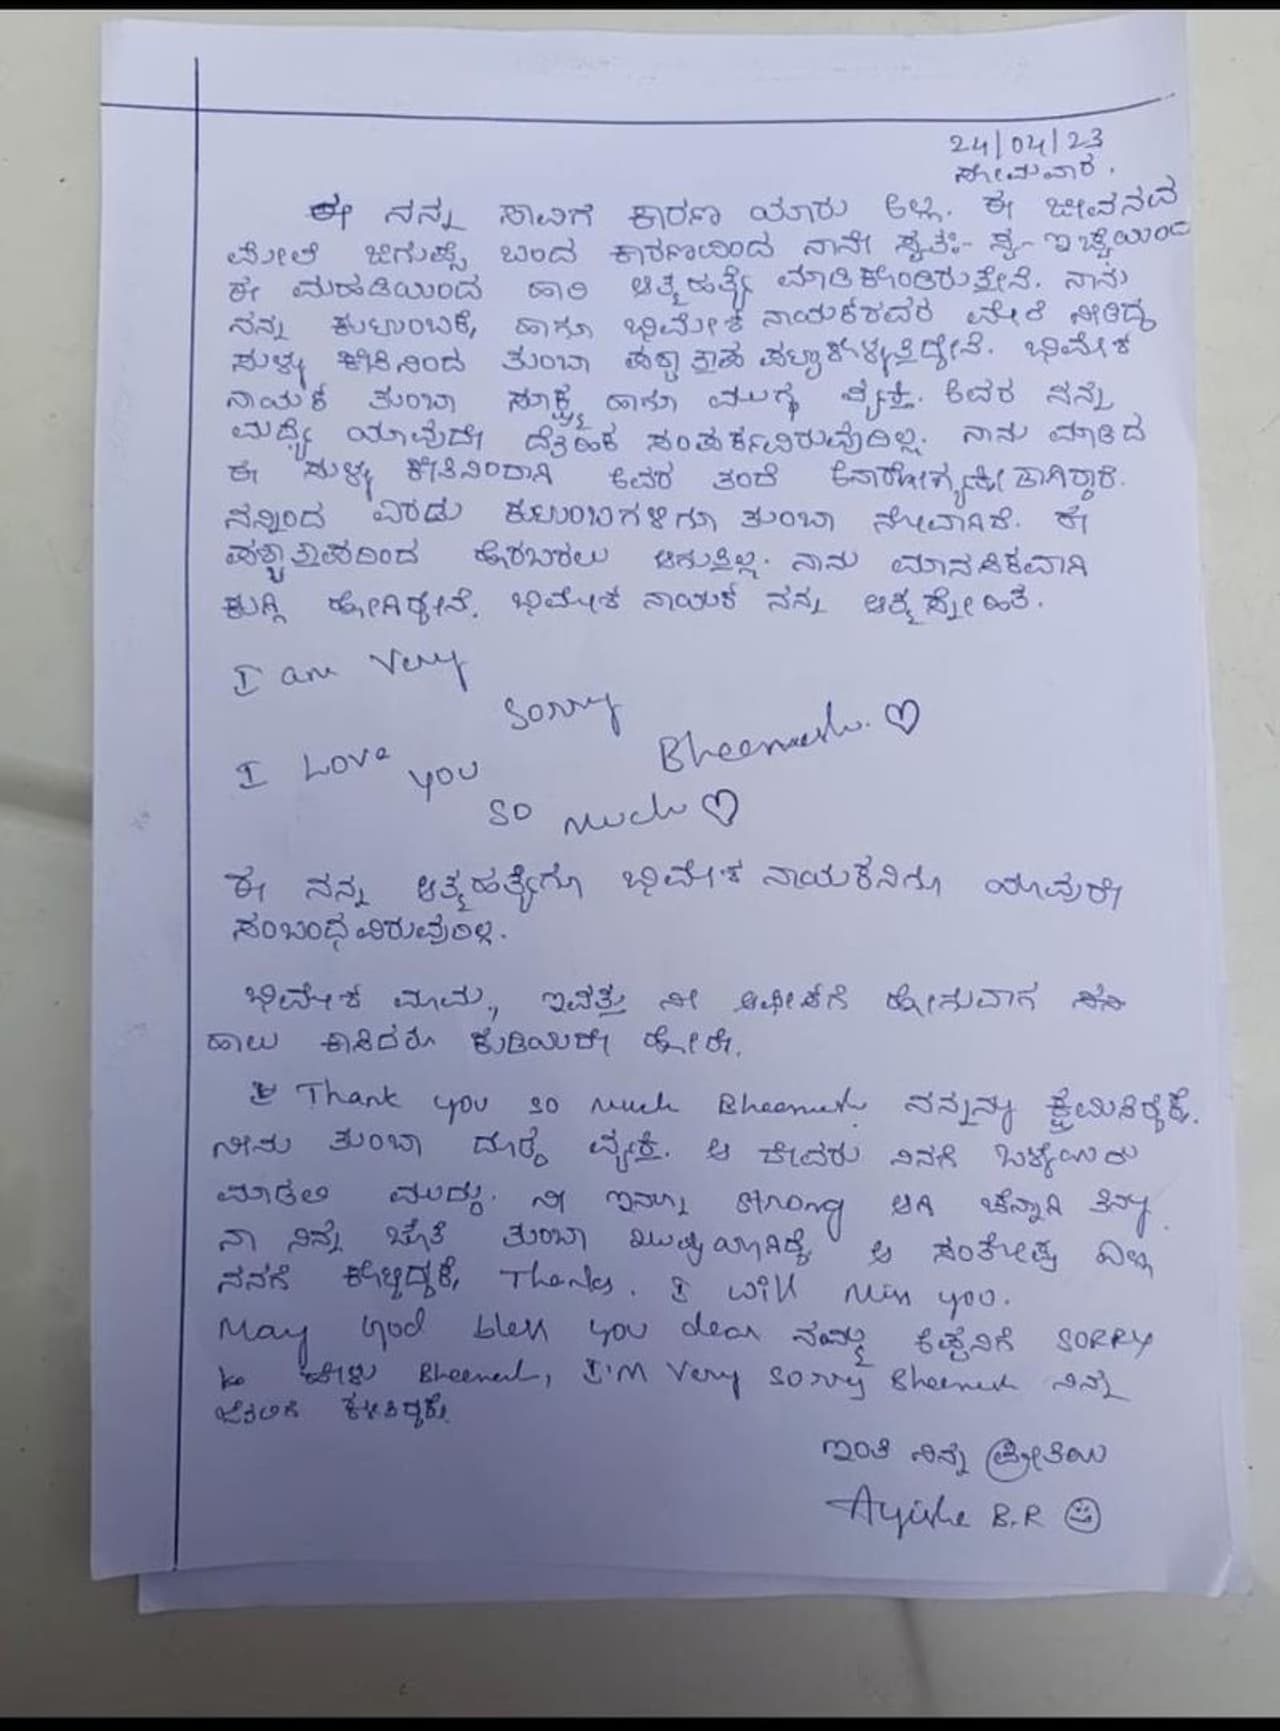 24/04/23
ಸೋಮವಾರ.
ಈ ನನ್ನ ಸಾವಿಗೆ ಕಾರಣ ಯಾರು ಅಲ್ಲ. ಈ ಜೀವನದ
ಮೇಲೆ ಜಿಗುಪ್ಸೆ ಬಂದ ಕಾರಣದಿಂದ ನಾನೇ ಸ್ವತಃ- ಸ್ವ-ಇಚ್ಛೆಯಿಂದ
ಈ ಮಹಡಿಯಿಂದ ಹಾರಿ ಆತ್ಮಹತ್ಯೆ ಮಾಡಿಕೊಂಡಿರುತ್ತೇನೆ. ನಾನು
ನನ್ನ ಕುಟುಂಬಕ್ಕೆ, ಹಾಗೂ ಭಿಮೇಶ ನಾಯಕರವರ ಮೇಲೆ ನೀಡಿದ್ದ
ಸುಳ್ಳು ಕೇಸಿನಿಂದ ತುಂಬಾ ಪಶ್ಚಾತ್ತಾಪ ಪಟ್ಟುಕೊಳ್ಳುತ್ತಿದ್ದೇನೆ. ಭಿಮೇಶ
ನಾಯಕ ತುಂಬಾ ಸೂಕ್ಷ್ಮ ಹಾಗೂ ಮುಗ್ಧ ವ್ಯಕ್ತಿ. ಅವರ ನನ್ನ
ಮಧ್ಯೆ ಯಾವುದೇ ದೈಹಿಕ ಸಂಪರ್ಕವಿರುವುದಿಲ್ಲ. ನಾನು ಮಾಡಿದ
ಈ ಸುಳ್ಳು ಕೇಸಿನಿಂದಾಗಿ ಅವರ ತಂದೆ ಅನಾರೋಗ್ಯಕ್ಕೀಡಾಗಿದ್ದಾರೆ.
ನನ್ನಿಂದ ಎರಡು ಕುಟುಂಬಗಳಿಗೂ ತುಂಬಾ ನೋವಾಗಿದೆ. ಈ
ಪಶ್ಚಾತ್ತಾಪದಿಂದ ಹೊರಬರಲು ಆಗುತ್ತಿಲ್ಲ. ನಾನು ಮಾನಸಿಕವಾಗಿ
ಕುಗ್ಗಿ ಹೋಗಿದ್ದೇನೆ. ಭಿಮೇಶ ನಾಯಕ ನನ್ನ ಆತ್ಮಸ್ನೇಹಿತ.
I am Very
sorry
Bheemesh. ♡
I Love you
so much ♡
ಈ ನನ್ನ ಆತ್ಮಹತ್ಯೆಗೂ ಭಿಮೇಶ ನಾಯಕನಿಗೂ ಯಾವುದೇ
ಸಂಬಂಧವಿರುವುದಿಲ್ಲ.
ಭಿಮೇಶ ಮಾಮ, ಇವತ್ತು ನೀ ಆಫೀಸಗೆ ಹೋಗುವಾಗ
ಹಾಲು ಕಾಸಿದರೂ ಕುಡಿಯದೇ ಹೋದೆ.
Thank you so much Bheemesh. ನನ್ನನ್ನು ಕ್ಷಮಿಸಿದ್ದಕ್ಕೆ.
ನೀನು ತುಂಬಾ ದೊಡ್ಡ ವ್ಯಕ್ತಿ. ಆ ದೇವರು ನಿನಗೆ ಒಳ್ಳೆಯದು
ಮಾಡಲಿ ಮುದ್ದು. ನೀ ಇನ್ನೂ strong ಆಗಿ ಚೆನ್ನಾಗಿ ತಿನ್ನು.
ನಾ ನಿನ್ನ ಜೊತೆ ತುಂಬಾ ಖುಷಿಯಾಗಿದ್ದೆ ಆ ಸಂತೋಷ ಎಲ್ಲ
ನನಗೆ ಕೊಟ್ಟಿದ್ದಕ್ಕೆ, Thanks. I will miss you.
May God bless you dear ನಮ್ಮ ಅಪ್ಪನಿಗೆ SORRY
ಹೇಳು Bheemesh, I'm Very sorry Bheemesh ನಿನ್ನ
ಇಂತಿ ನಿನ್ನ ಪ್ರೀತಿಯ
Ayisha B.R